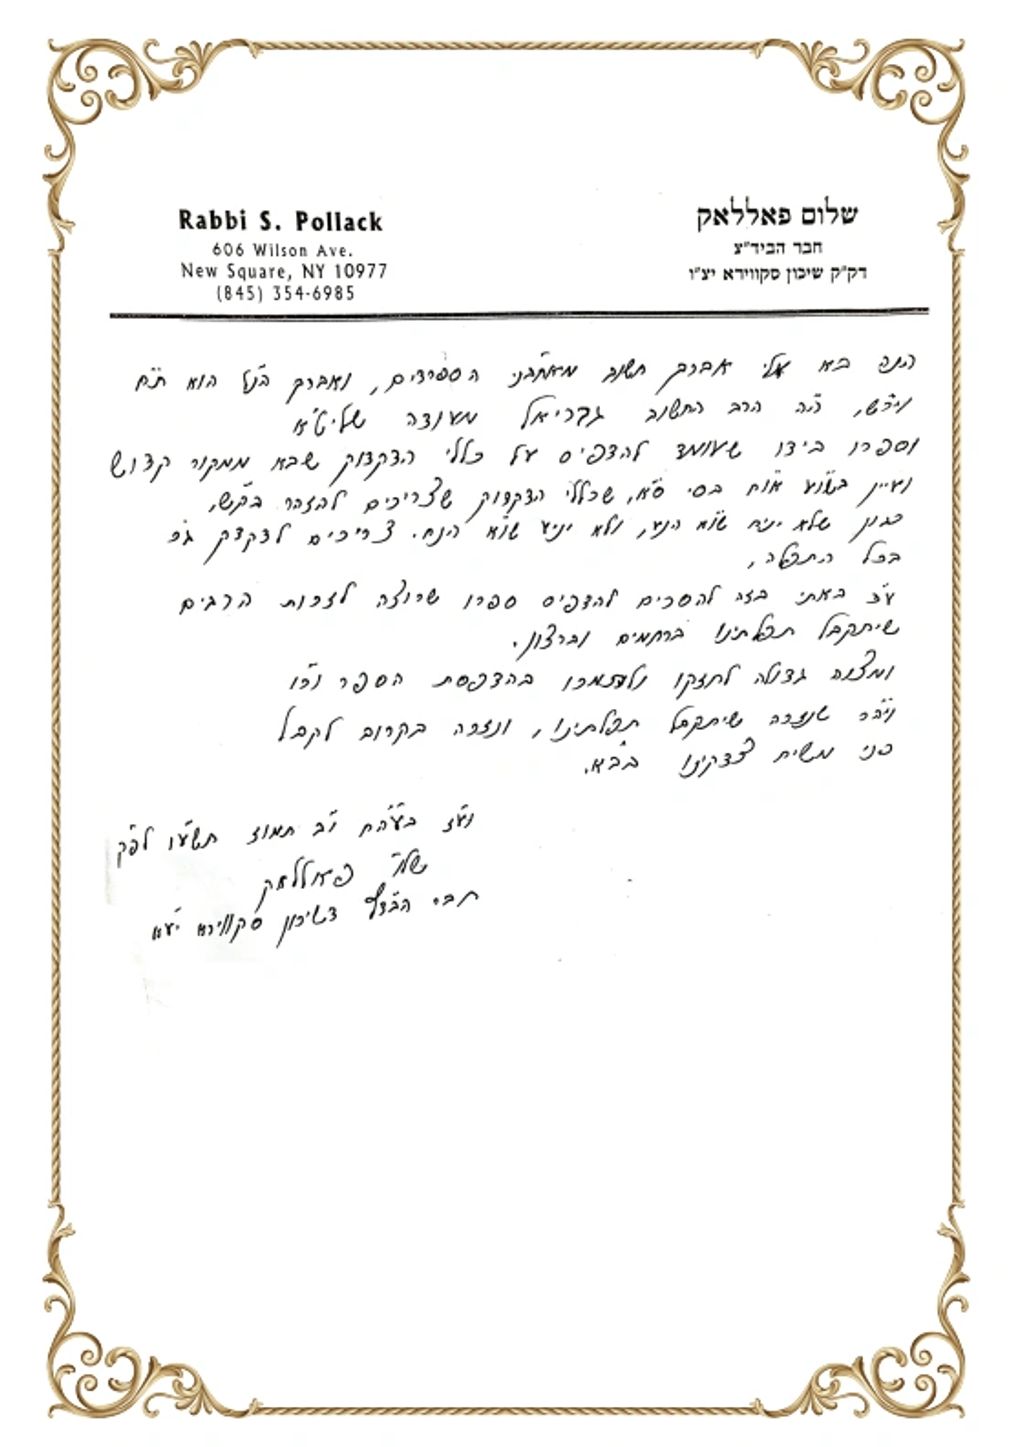 Rabbi S. Pollack
606 Wilson Ave.
New Square, NY 10977
(845) 354-6985
שלום פאללאק
חבר הביד"צ
דק"ק שיכון סקווירא יצ"ו
הנה בא אלי אברך חשוב מאחב"י הספרדים, ואברך הנ"ל הוא ת"ח
ויר"ש, ה"ה הרב החשוב גבריאל מעודה שליט"א
וספרו בידו שעומד להדפיס על כללי הדקדוק שבא ממקור קדוש
ועיין בשו"ע או"ח בסי' ס"א, שכללי הדקדוק שצריכים להזהר בק"ש,
כגון שלא יניח שוא הנע, ולא יניע שוא הנח. צריכים לדקדק ג"כ
בכל התפלה,
ע"כ באתי בזה להסכים להדפיס ספרו שרוצה לזכות הרבים
שיתקבל תפלתינו ברחמים וברצון.
ומצוה גדולה לחזקו בהדפסת הספר
שנזכה שיתקבל תפלתינו, ונזכה בקרוב לקבל
פני משיח צדקינו בב"א.
וע"ז בעה"ח י"ב תמוז תשע"ו לפ"ק
שלום פאללאק
חבר הביד"צ דשיכון סקווירא יע"א